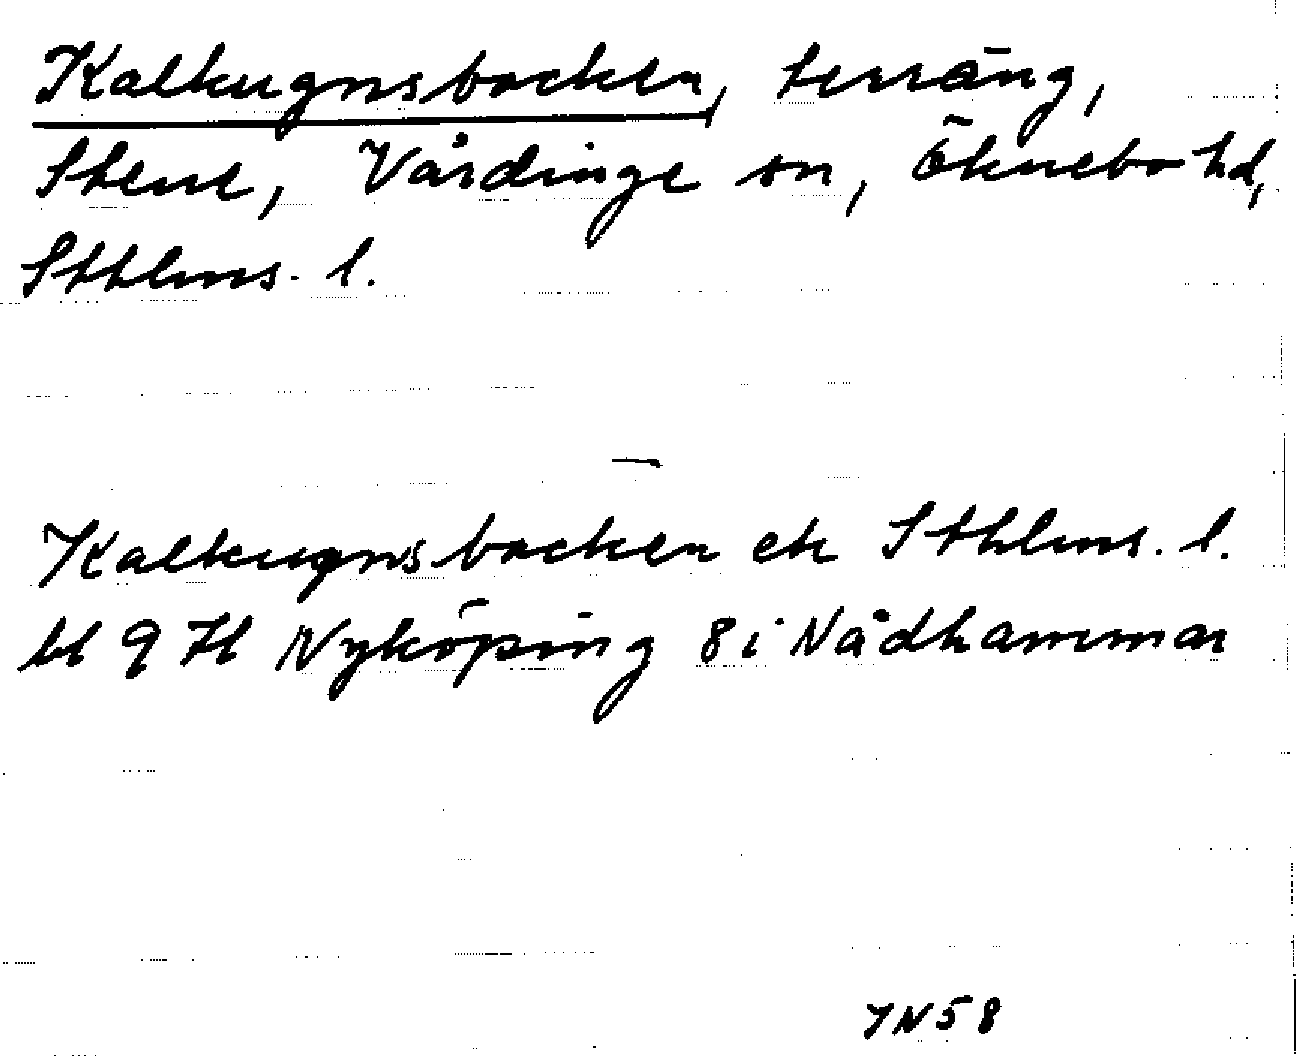 Kalkugnsbacken, terräng,
Stene, Vårdinge sn, Öknebo hd,
Sthlms. l.
Kalkugnsbacken ek Sthlms. l.
bl 9 H Nyköping 8 i Nådhammar
YN58